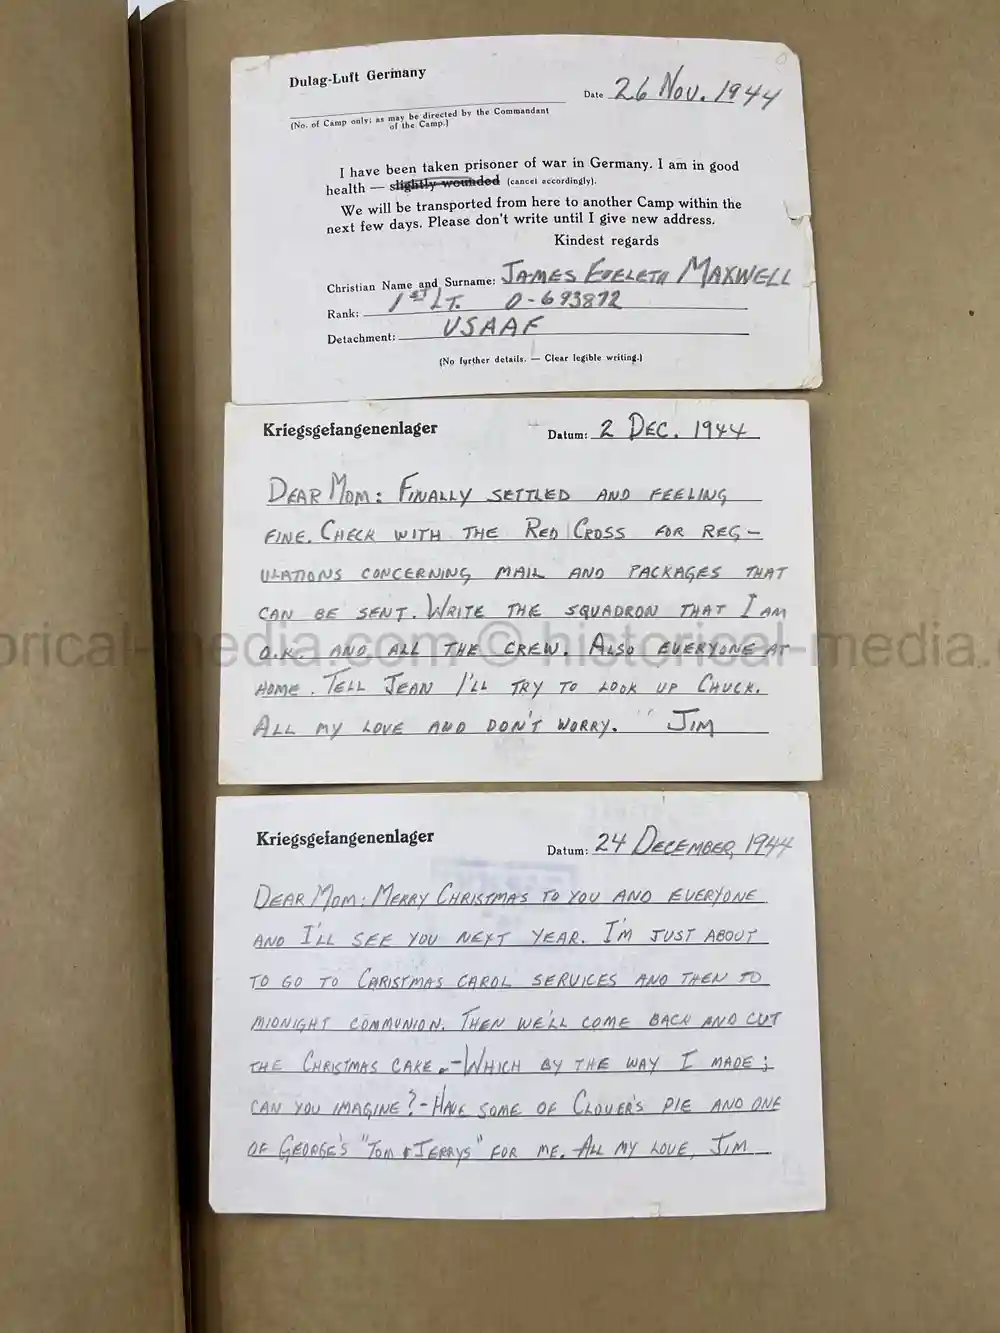 Dulag-Luft Germany
Date 26 Nov. 1944
(No. of Camp only; as may be directed by the Commandant
of the Camp.)
I have been taken prisoner of war in Germany. I am in good
health — slightly wounded (cancel accordingly).
We will be transported from here to another Camp within the
next few days. Please don't write until I give new address.
Kindest regards
Christian Name and Surname: JAMES EVELETH MAXWELL
Rank: 1ST LT. O-693872
Detachment: USAAF
(No further details. — Clear legible writing.)
Kriegsgefangenenlager
Datum: 2 DEC. 1944
DEAR MOM: FINALLY SETTLED AND FEELING
FINE. CHECK WITH THE RED CROSS FOR REG-
ULATIONS CONCERNING MAIL AND PACKAGES THAT
CAN BE SENT. WRITE THE SQUADRON THAT I AM
O.K. AND ALL THE CREW. ALSO EVERYONE AT
HOME. TELL JEAN I'LL TRY TO LOOK UP CHUCK.
ALL MY LOVE AND DON'T WORRY. JIM
orical-media.com © historical-media.
Kriegsgefangenenlager
Datum: 24 DECEMBER, 1944
DEAR MOM: MERRY CHRISTMAS TO YOU AND EVERYONE
AND I'LL SEE YOU NEXT YEAR. I'M JUST ABOUT
TO GO TO CHRISTMAS CAROL SERVICES AND THEN TO
MIDNIGHT COMMUNION. THEN WE'LL COME BACK AND CUT
THE CHRISTMAS CAKE.-WHICH BY THE WAY I MADE;
CAN YOU IMAGINE?-HAVE SOME OF CLOVER'S PIE AND ONE
OF GEORGE'S "TOM & JERRYS" FOR ME. ALL MY LOVE, JIM